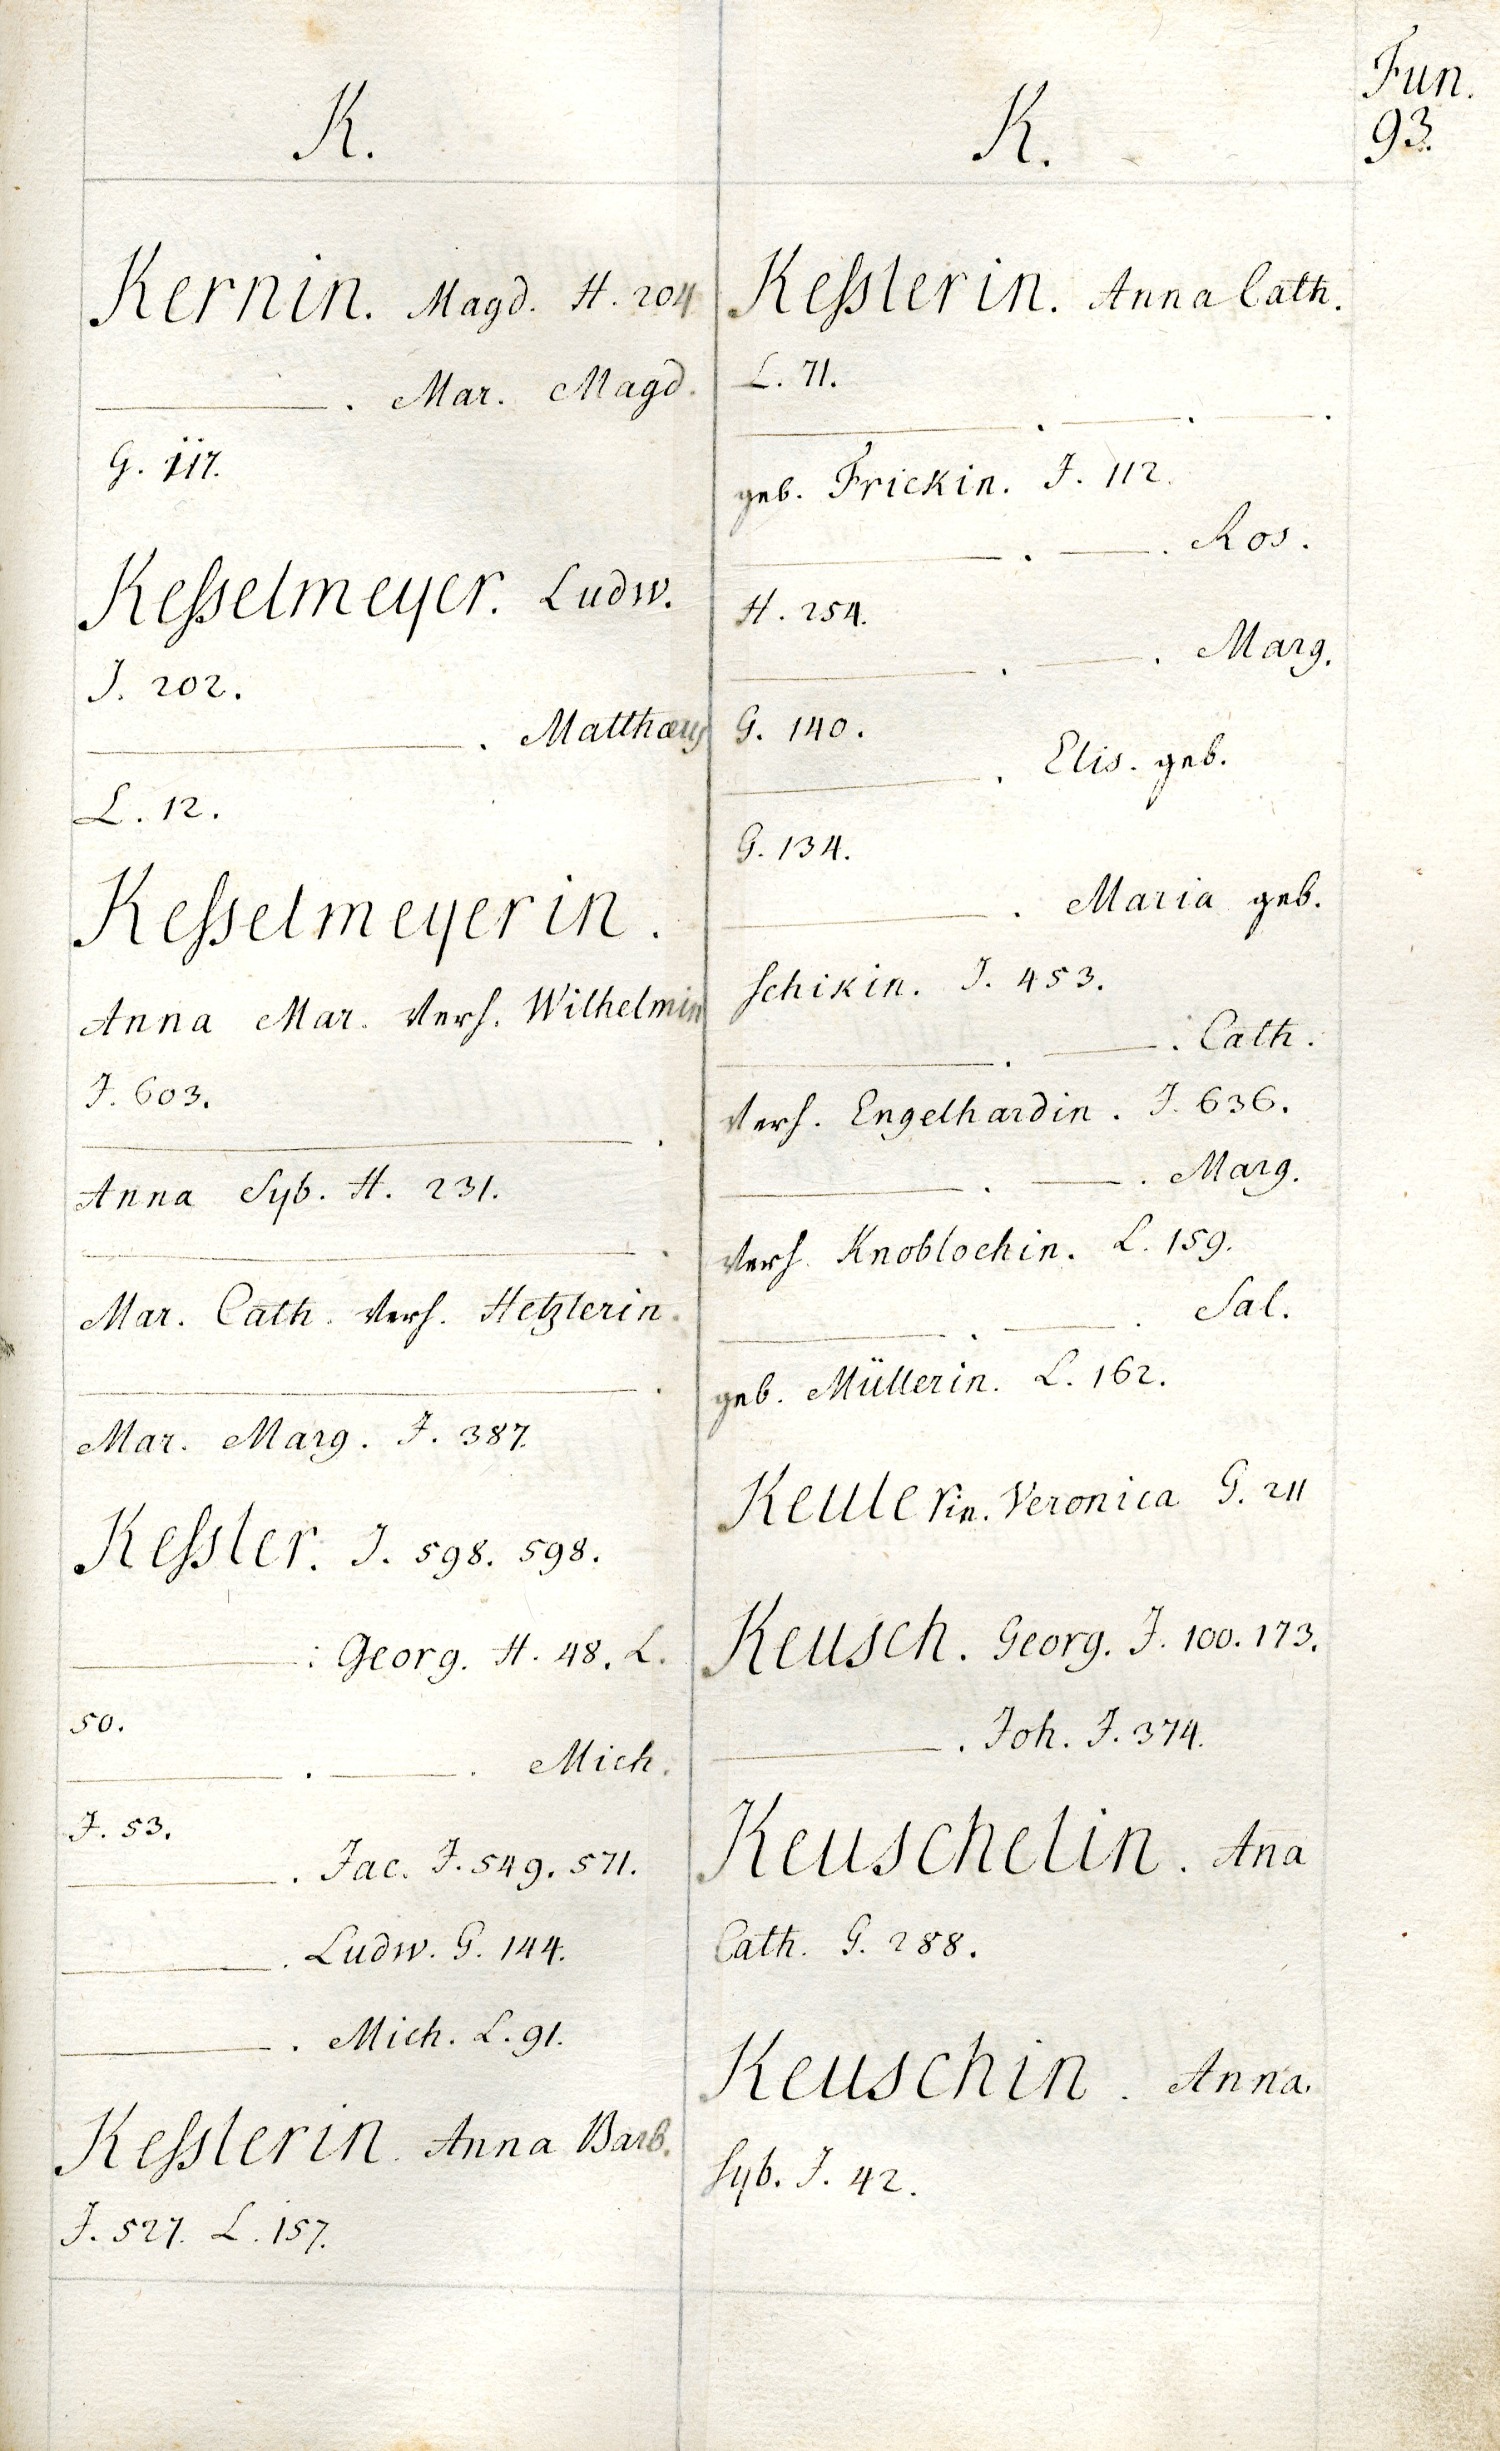 Fun.
93.
K.
Kernin. Magd. H. 204
———. Mar. Magd.
G. 117.
Keſselmeyer. Ludw.
J. 202.
———. Matthæus
L. 12.
Keſselmeyerin.
Anna Mar. verh. Wilhelmin
J. 603.
———.
Anna Syb. H. 231.
———.
Mar. Cath. verh. Hetzlerin.
———.
Mar. Marg. J. 387.
Keſsler. J. 598. 598.
———: Georg. H. 48. L.
50.
———. ———. Mich.
J. 53.
———. Jac. J. 549. 571.
———. Ludw. G. 144.
———. Mich. L. 91.
Keſslerin. Anna Barb.
J. 527. L. 157.
K.
Keſslerin. Anna Cath.
L. 71.
———. ———. ———.
geb. Frickin. J. 112.
———. ———. Ros.
H. 254.
———. ———. Marg.
G. 140.
———. Elis. geb.
G. 134.
———. Maria geb.
Schikin. J. 453.
———. ———. Cath.
verh. Engelhardin. J. 636.
———. ———. Marg.
verh. Knoblochin. L. 159.
———. ———. Sal.
geb. Müllerin. L. 162.
Keulerin. Veronica G. 211
Keusch. Georg. J. 100. 173.
———. Joh. J. 374.
Keuschelin. Ana
Cath. G. 288.
Keuschin. Anna
Syb. J. 42.